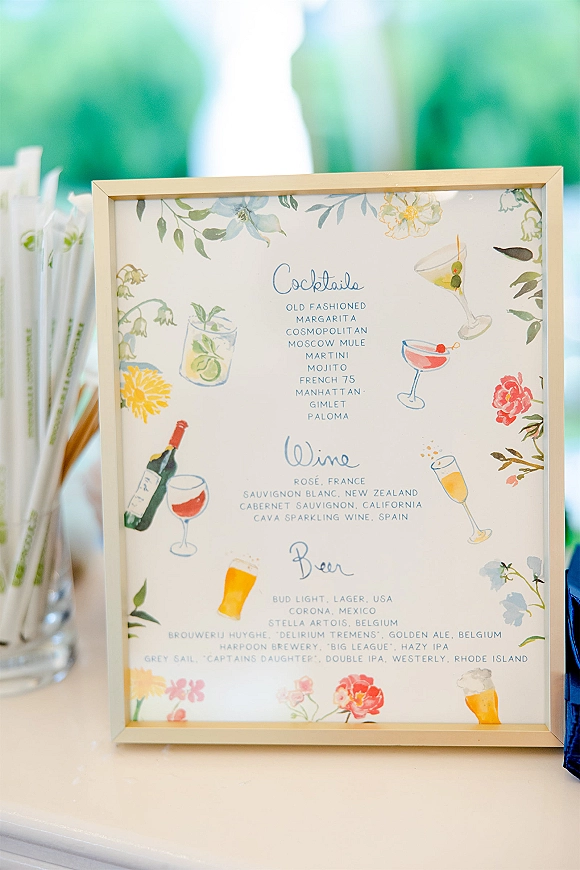 Cocktails
OLD FASHIONED
MARGARITA
COSMOPOLITAN
MOSCOW MULE
MARTINI
MOJITO
FRENCH 75
MANHATTAN
GIMLET
PALOMA
Wine
ROSÉ, FRANCE
SAUVIGNON BLANC, NEW ZEALAND
CABERNET SAUVIGNON, CALIFORNIA
CAVA SPARKLING WINE, SPAIN
Beer
BUD LIGHT, LAGER, USA
CORONA, MEXICO
STELLA ARTOIS, BELGIUM
BROUWERIJ HUYGHE, "DELIRIUM TREMENS", GOLDEN ALE, BELGIUM
HARPOON BREWERY, "BIG LEAGUE", HAZY IPA
GREY SAIL, "CAPTAINS DAUGHTER", DOUBLE IPA, WESTERLY, RHODE ISLAND